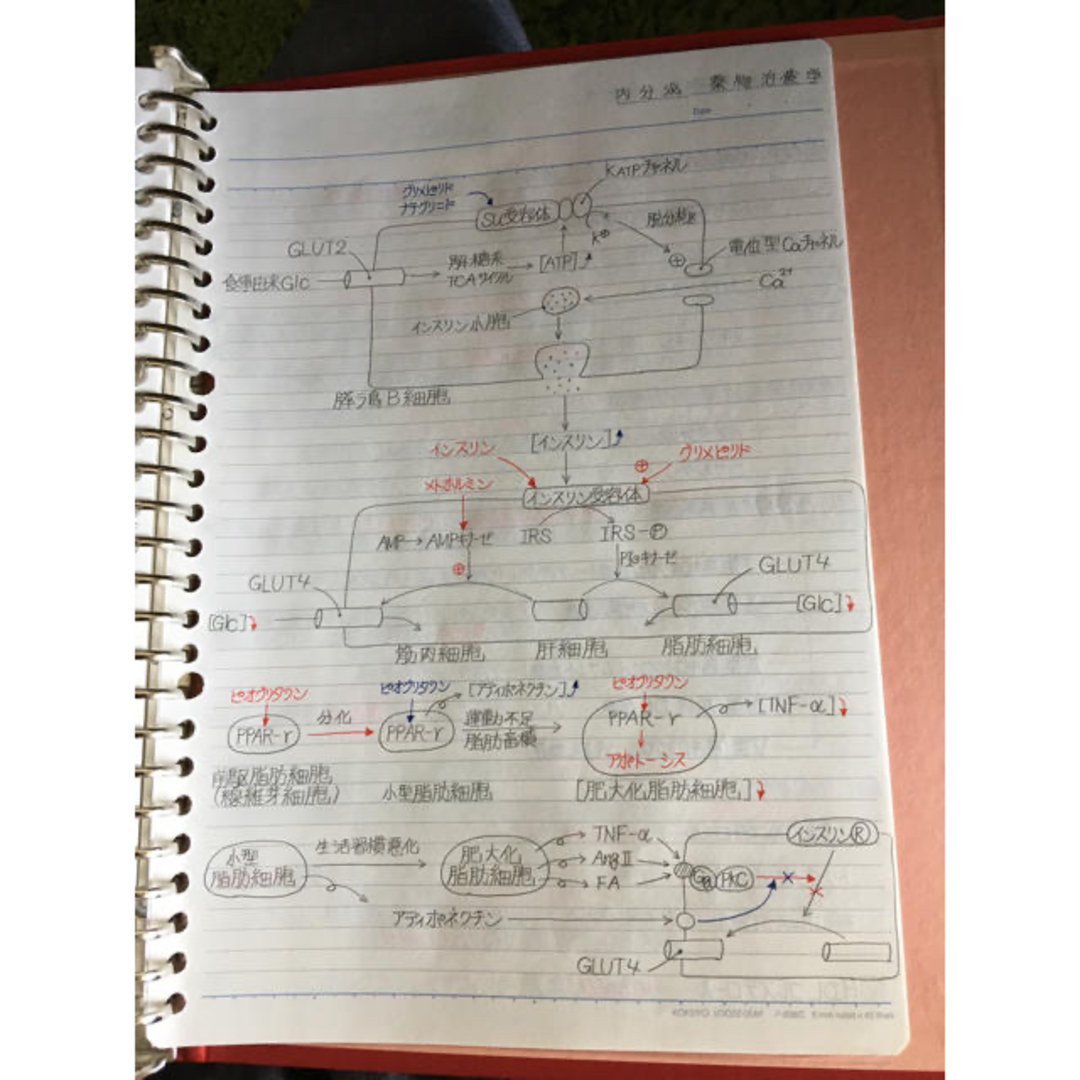 内分泌 薬物治療学
Date
KATPチャネル
グリメピリド
ナテグリニド
SU受容体
K⊕
脱分極
GLUT2
電位型Caチャネル
食事由来Glc
解糖系
TCAサイクル
[ATP]↑
⊕
Ca²⁺
インスリン小胞
膵ラ島B細胞
[インスリン]↑
インスリン
⊕
グリメピリド
メトホルミン
インスリン受容体
AMP→AMPキナーゼ
IRS
IRS-Ⓟ
⊕
PI₃キナーゼ
GLUT4
GLUT4
[Glc]↓
[Glc]↓
筋肉細胞
肝細胞
脂肪細胞
ピオグリタゾン
ピオグリタゾン
[アディポネクチン]↑
ピオグリタゾン
PPAR-γ
分化
PPAR-γ
運動不足
脂肪蓄積
PPAR-γ
[TNF-α]↓
アポトーシス
前駆脂肪細胞
(線維芽細胞)
小型脂肪細胞
[肥大化脂肪細胞]↓
小型
脂肪細胞
生活習慣悪化
肥大化
脂肪細胞
TNF-α
AngⅡ
FA
インスリンⓇ
PKC
アディポネクチン
GLUT4
KOKUYO LOOSE-LEAF